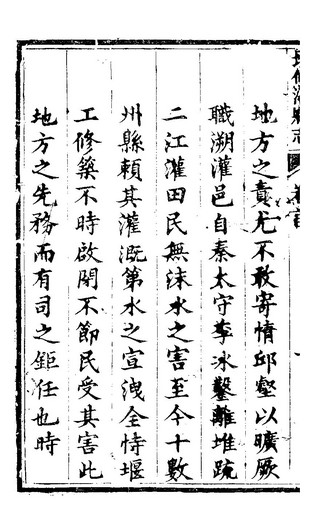 地方之責尤不敢寄情邱壑以曠厥
職溯灌邑自秦太守李冰鑿離堆疏
二江灌田民無沬水之害至今十數
州縣賴其灌溉第水之宣洩全恃堰
工修築不時啟閉不節民受其害此
地方之先務而有司之鉅任也時